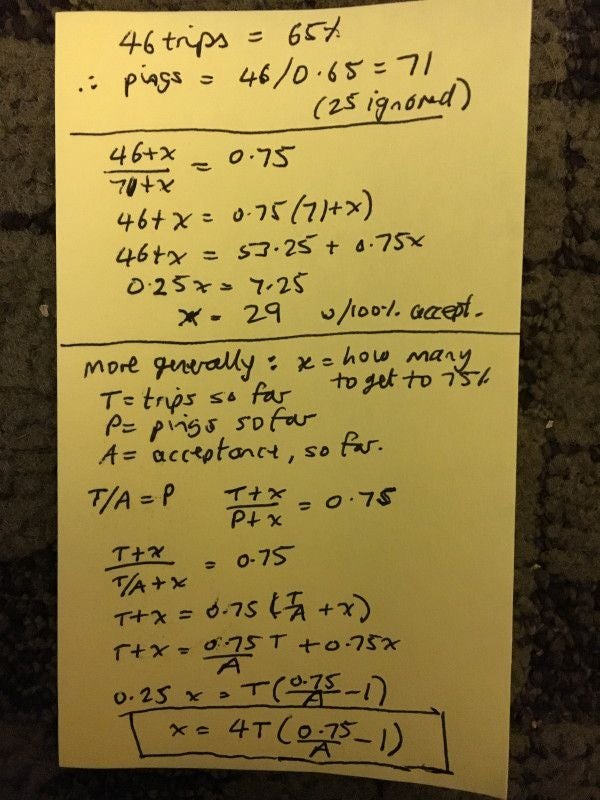 46 trips = 65%
∴ pings = 46/0.65 = 71
(25 ignored)
46+x / 71+x = 0.75
46+x = 0.75(71+x)
46+x = 53.25 + 0.75x
0.25x = 7.25
x = 29 w/100% accept.
more generally: x = how many
to get to 75%
T = trips so far
P = pings so far
A = acceptance, so far.
T/A = P T+x / P+x = 0.75
T+x / T/A+x = 0.75
T+x = 0.75 (T/A + x)
T+x = 0.75/A T + 0.75x
0.25 x = T(0.75/A - 1)
x = 4T(0.75/A - 1)